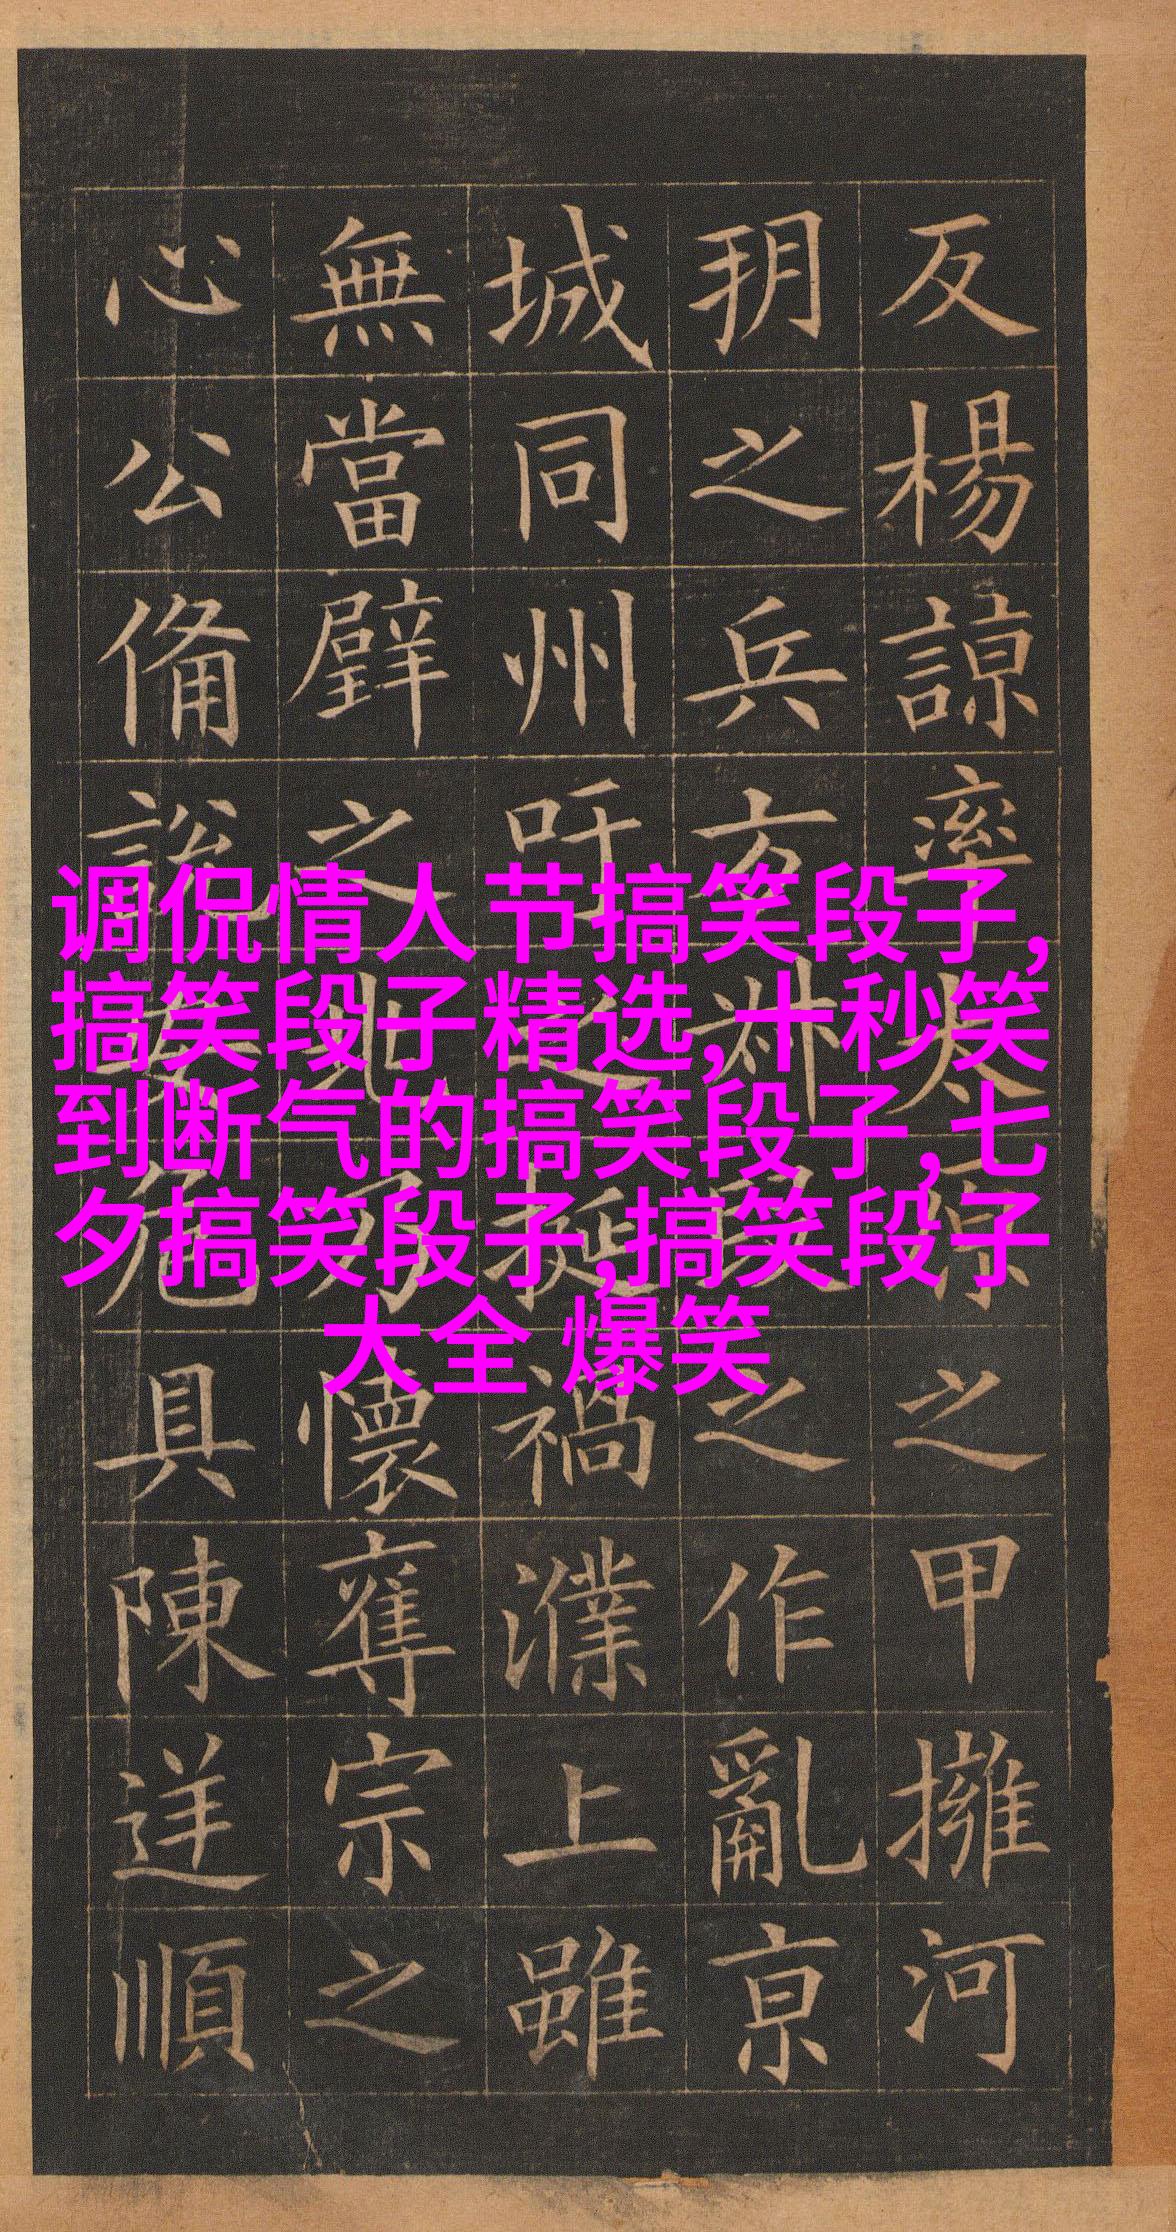 反楊諒率太原之甲擁河
朔之兵方叔段之作亂亰
城同州吁之挻禍濮上雖
無當璧之兆乃懷奪宗之
心公備說安危具陳逆順
调侃情人节搞笑段子,
搞笑段子精选,十秒笑
到断气的搞笑段子,七
夕搞笑段子,搞笑段子
大全 爆笑